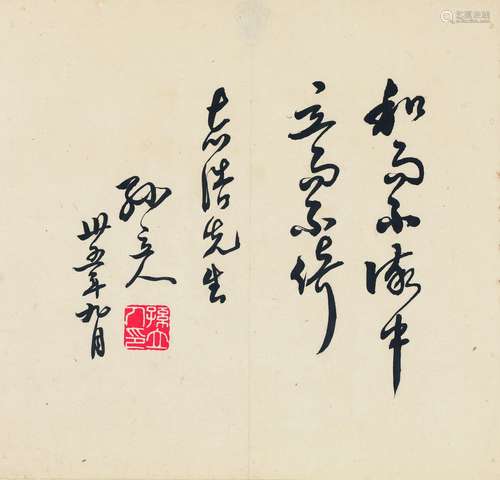 和而不流中
立而不倚
志浩先生
孫立人
卅五年九月
孫立
人印